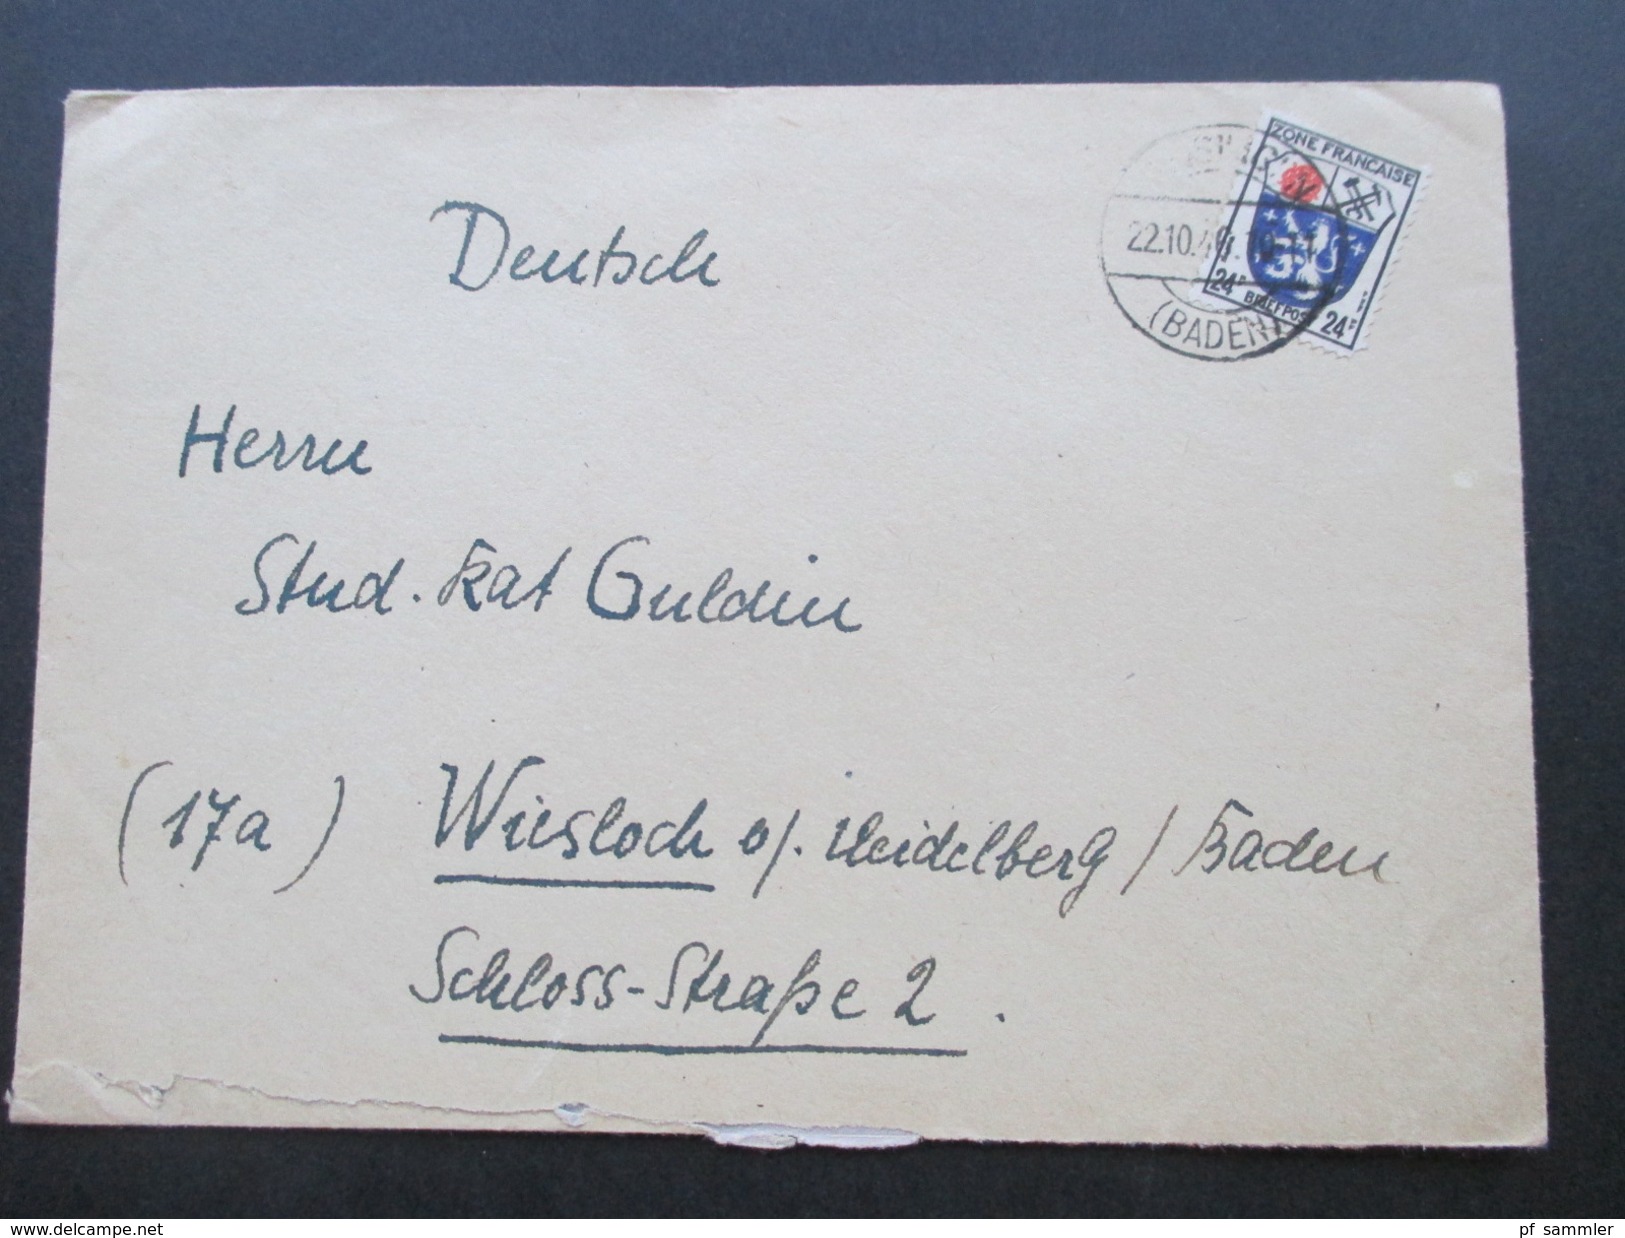 ZONE FRANCAISE
22.10.46.10-11
24F BRIEFPOST 24F
(BADEN)
Deutsch
Herrn
Stud. Rat Guldin
(17a) Wiesloch b/. Heidelberg / Baden
Schloss-Straße 2.
www.delcampe.net
pf_sammler